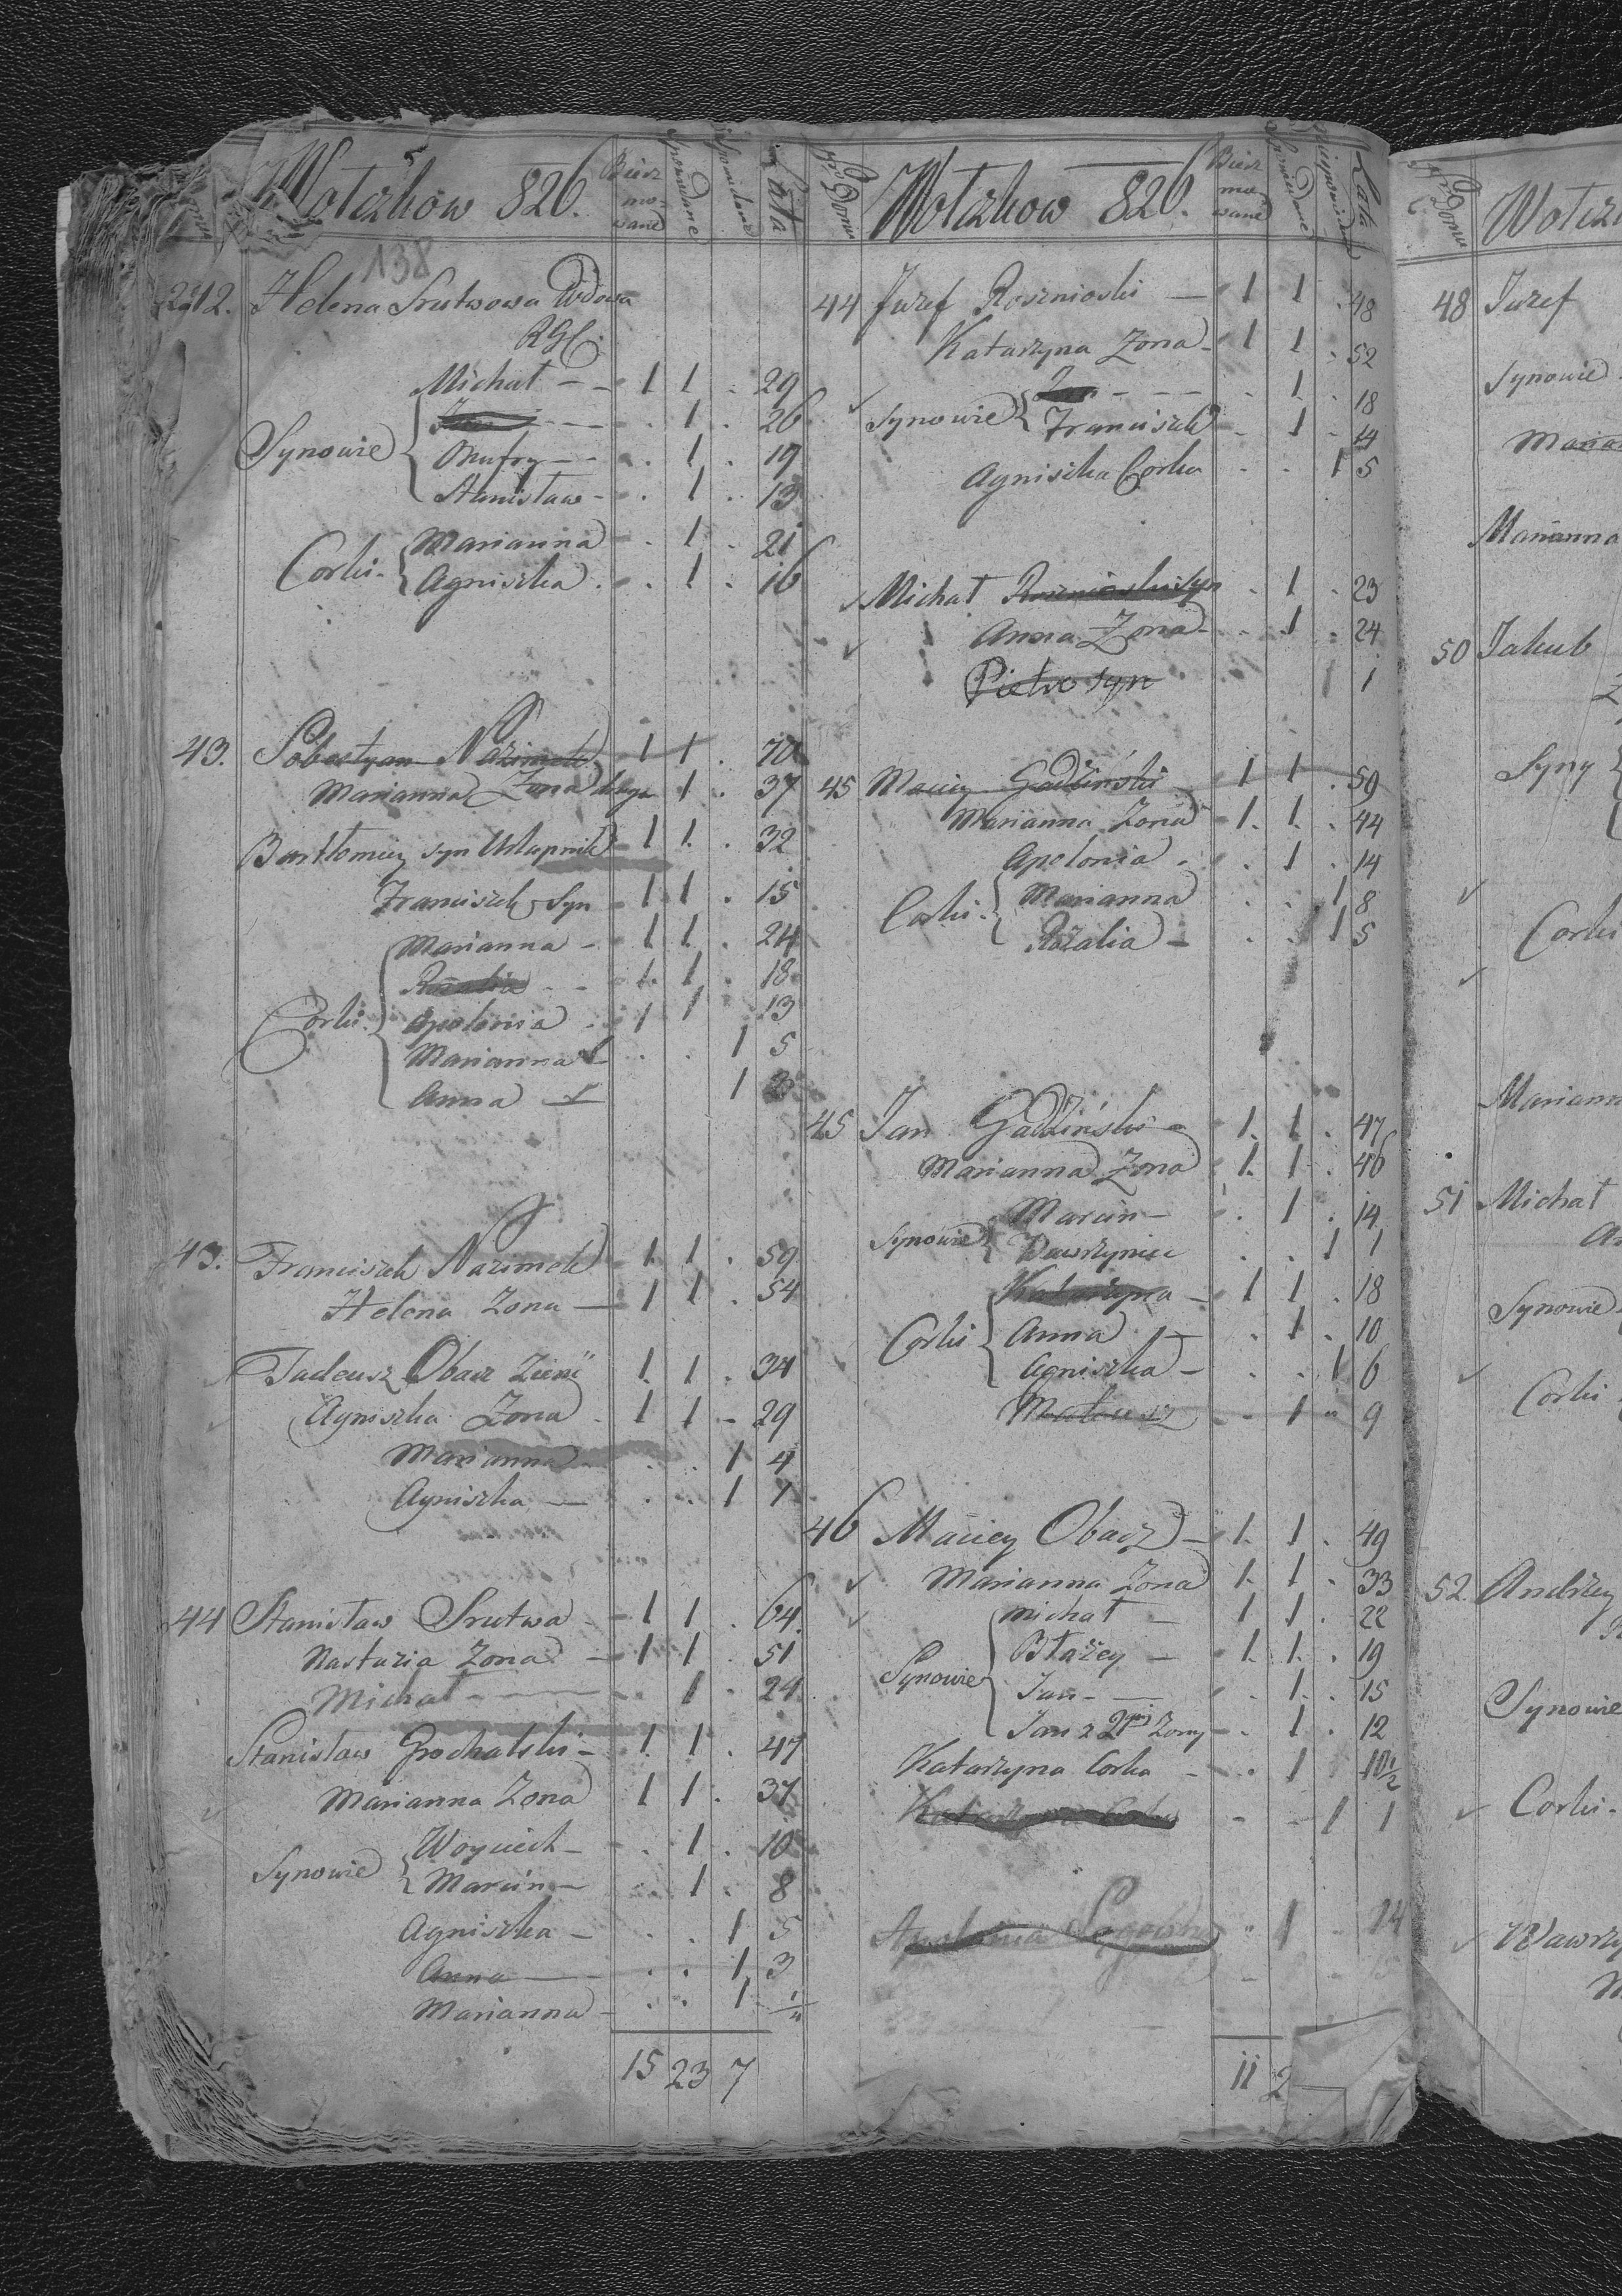 Wolczkow 826. Bierzmowane Spowiadane Lata
138
42. Helena Srutwowa Wdowa
Michał - - 1 1 . 29
Synowie - - . 1 . 26
Onufry - - . 1 . 19
Stanisław - . 1 . 13
Corki - Marianna . 1 . 21
Agniszka . . 1 . 16
43. Sobestyan Nazimek 1 1 . 70
Marianna Zona 1 . 37
Bartłomiey syn 1 1 . 32
Franciszek Syn 1 1 . 15
Marianna - 1 1 . 24
Rozalia - - 1. 1 . 18
Corki. Apolonia . 1 1 13
Marianna . . 1 5
Anna 1
43. Franciszek Nazimek 1. 1 . 59
Helena Zona - 1 1 . 54
Tadeusz Obacz 1. 1 . 34
Agniszka Zona . 1 1 - 29
Marianna . . 1 4
Agniszka - . . 1 1
44 Stanisław Srutwa 1 1 . 64
Nastazia Zona - 1 1 . 51
Michał - . 1 . 24
Stanisław Grochalski - 1. 1 . 47
Marianna Zona 1 1 . 37
Synowie Woyciech - . 1 . 10
Marcin - . 1 . 8
Agniszka - . . 1 5
Anna - . . 1 3
Marianna - . . 1
15 23 7
Nro Domu Wolczkow 826. Bierzmowane Spowiadane Lata
44 Juzef Rosznioski - 1 1 . 48
Katarzyna Zona - 1 1 . 52
- - - . 1 . 18
Synowie Franciszek - 1 - 14
Agniszka Corka . . 1 5
Michał Rosznioski syn . 1 . 23
Anna Zona - . 1 . 24
Piotr syn 1 1
45 Maciey Gadziński 1 1 . 59
Marianna Zona - 1. 1. . 44
Apolonia . . 1 . 14
Corki - Marianna . . 1 8
Rozalia - . . 1 5
45 Jan Gadziński - 1. 1. . 47
Marianna Zona 1. 1 . 46
Marcin - . 1 . 14
Synowie Wawrzyniec . . 1 1
Katarzyna - 1 1 . 18
Corki Anna . 1 . 10
Agniszka - . . 1 6
Mateusz - - 1 " 9
46 Maciey Obacz - 1. 1 . 49
Marianna Zona 1. 1 . 33
Michał - 1 1 . 22
Błażey - 1. 1. . 19
Synowie Jan - . 1. . 15
Jan z 2giey Zony - . 1 . 12
Katarzyna Corka - . 1 10 1/2
Katarzyna Corka - - 1 1
Apolonia " 1 - 14
11 2
Nro Domu
48 Juzef
Synowie
Marianna
50 Jakub
Syny
Corki
51 Michał
Synowie
Corki
52. Andrzey
Synowie
Corki -